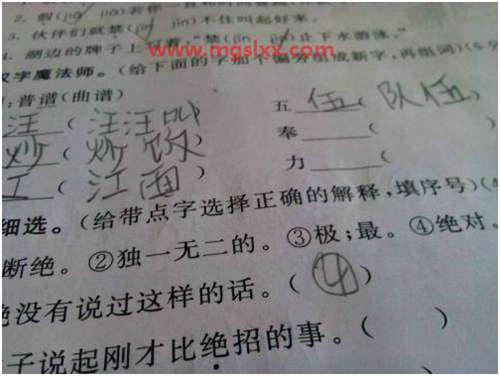 2. 假(jiǎ jià)若你
3. 伙伴们就禁(jīn jìn)不住叫起好来。
4. 湖边的牌子上写着:“禁(jīn jìn)止下水游泳。”
www.mgslxx.com
汉字魔法师。(给下面的字加个偏旁组成新字,再组词)(6分
:普谱(曲谱) 五 伍(队伍)
汪(汪汪叫 奉____(
炒(炒饭 力____(
工(江面)
细选。(给带点字选择正确的解释,填序号)(4
断绝。②独一无二的。③极;最。④绝对。
绝没有说过这样的话。(④)
子说起刚才比绝招的事。( )